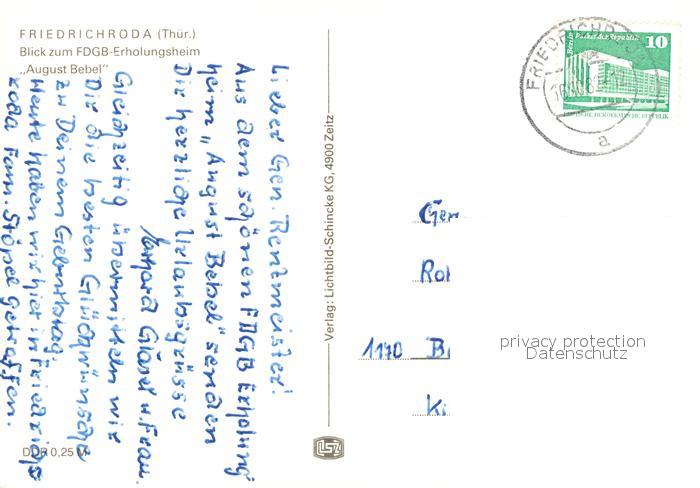 FRIEDRICHRODA (Thür.)
Blick zum FDGB-Erholungsheim
„August Bebel“
Lieber Gen. Rentmeister!
Aus dem schönen FDGB Erholung
heim „August Bebel“ senden
Dir herzliche Urlaubsgrüsse
Gleichzeitig übermitteln wir
Dir die besten Glückwünsche
zu Deinem Geburtstag.
Heute haben wir hier in Friedrichs
roda Fam. Stöpel getroffen.
DDR 0,25 M
Verlag: Lichtbild-Schincke KG, 4900 Zeitz
Berlin, Palast der Republik
10
FRIEDRICHRO
a
Gen
Rol
1140 B
Ki
privacy protection
Datenschutz